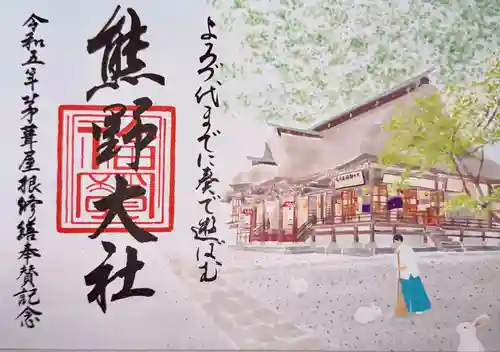 よろづ代までに奏で遊ばむ
熊野大社
令和五年茅葺屋根修繕奉賛記念